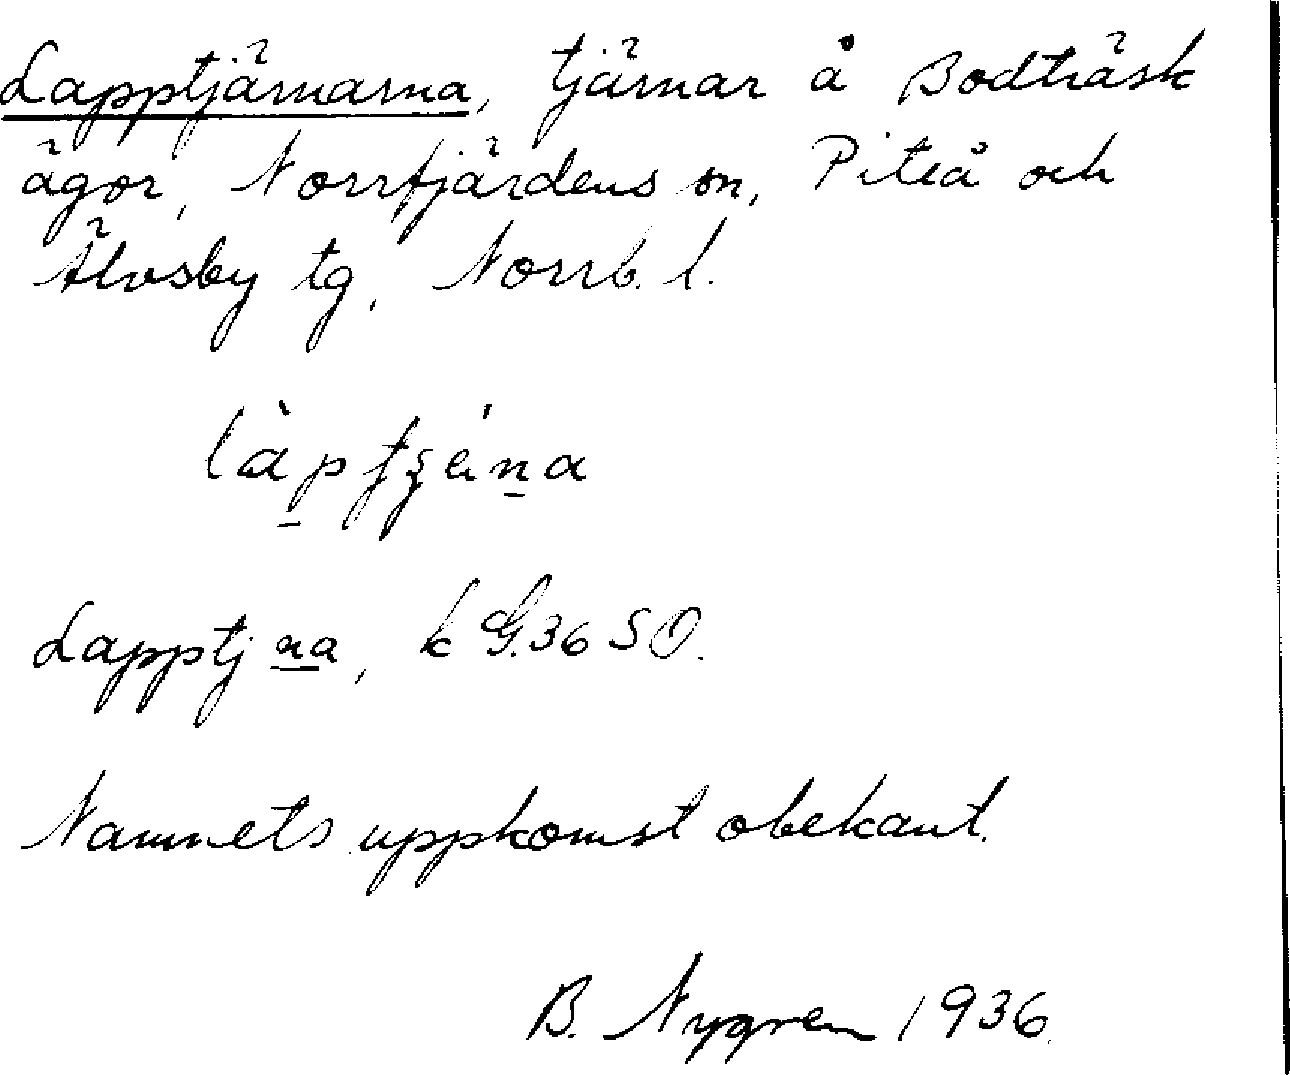 Lapptjärnarna, tjärnar å Bodträsk
ägor, Norrfjärdens sn, Piteå och
Älvsby tg, Norrb. l.
Lapptj na, k G.36 SO.
Namnets uppkomst obekant.
B. Nygren 1936.